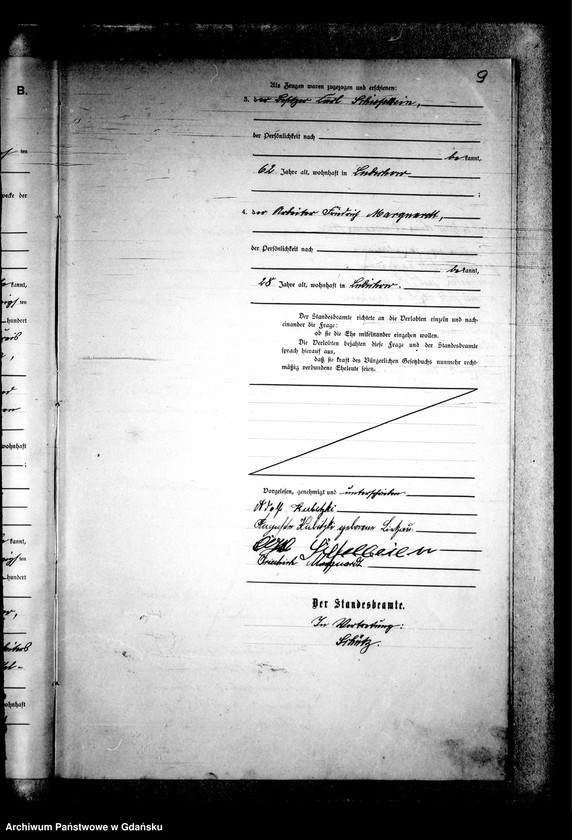 B.
9
Als Zeugen waren zugezogen und erschienen:
3. der Besitzer Carl
der Persönlichkeit nach
be kannt,
62 Jahre alt, wohnhaft in
;
4. der Arbeiter Friedrich Marquardt,
der Persönlichkeit nach
be kannt,
28 Jahre alt, wohnhaft in
Der Standesbeamte richtete an die Verlobten einzeln und nach-
einander die Frage:
ob sie die Ehe miteinander eingehen wollen.
Die Verlobten bejahten diese Frage und der Standesbeamte
sprach hierauf aus,
daß sie kraft des Bürgerlichen Gesetzbuchs nunmehr recht-
mäßig verbundene Eheleute seien.
Vorgelesen, genehmigt und unterschrieben
Adolf Kubitzki
Auguste Kubitzki geborene
Friedrich Marquardt
Der Standesbeamte.
In Vertretung:
Schütz.
Archiwum Państwowe w Gdańsku